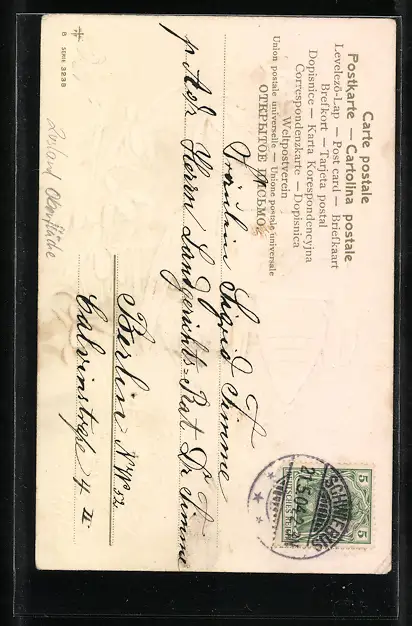 Carte postale
Postkarte — Cartolina postale
Levelező-Lap — Post card — Briefkaart
Brefkort — Tarjeta postal
Dopisnice — Karta Korespondencyjna
Correspondenzkarte — Dopisnica
Weltpostverein
Union postale universelle — Unione postale universale
ОТКРЫТОЕ ПИСЬМО
5 5
SCHWIEBUS
21.5.04
Fräulein Sigrid Timme
p. Adr. Herrn Landgerichts-Rat Dr. Timme
Berlin NW 52
Calvinstraße 4 II
B SERIE 3238